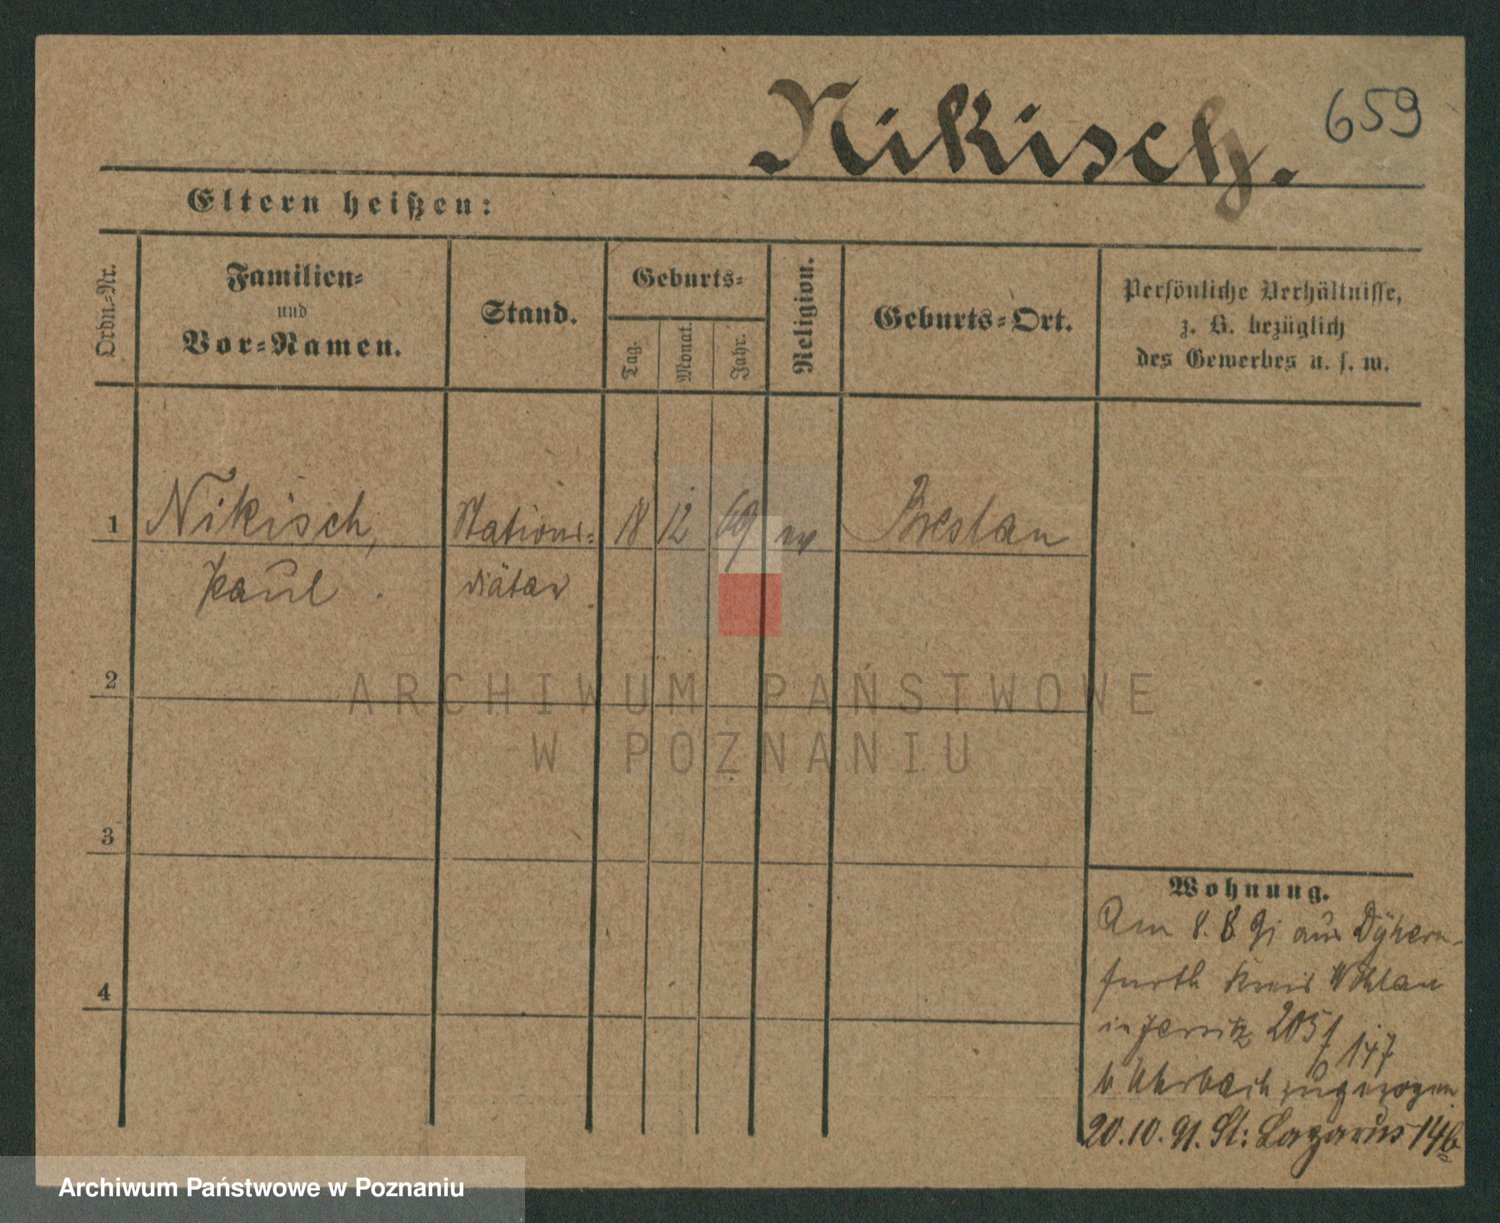 Nikisch.
659
Eltern heißen:
Ordn.-Nr.
Familien-
und
Vor-Namen.
Stand.
Geburts-
Tag.
Monat.
Jahr.
Religion.
Geburts-Ort.
Persönliche Verhältnisse,
z. B. bezüglich
des Gewerbes u. s. w.
1 Nikisch, Stations- 18 12 69 ev Breslau
Paul. diätar.
2
ARCHIWUM PAŃSTWOWE
W POZNANIU
3
4
Wohnung.
Am 8. 8 91 aus Dyhern-
furth Kreis Wohlau
in Jersitz 205f 147
b zugezogen
20.10.91. St: Lazarus 14b
Archiwum Państwowe w Poznaniu